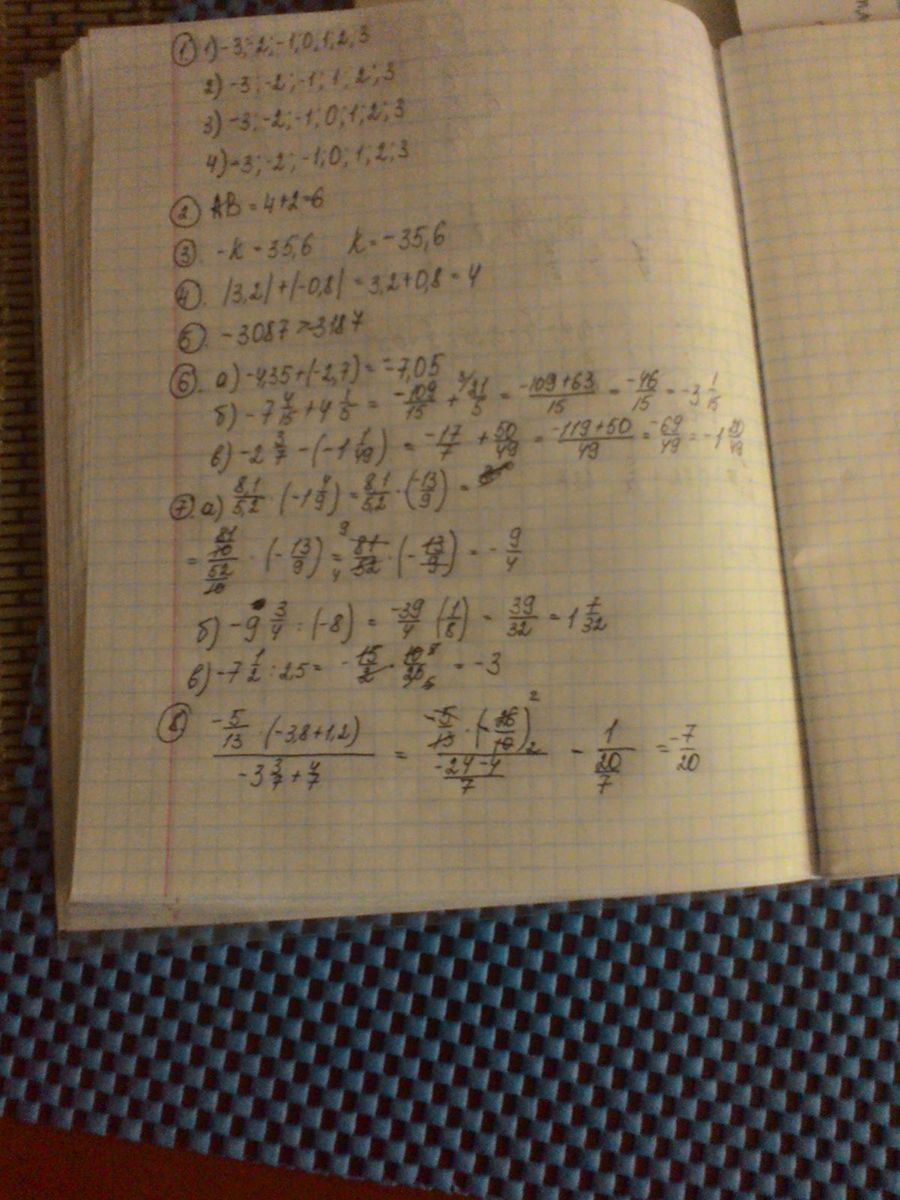 ① 1) -3; -2; -1; 0; 1; 2; 3
2) -3; -2; -1; 1; 2; 3
3) -3; -2; -1; 0; 1; 2; 3
4) -3; -2; -1; 0; 1; 2; 3
② AB = 4+2=6
③. -k = 35,6 k = -35,6
④. |3,2| + |-0,8| = 3,2+0,8 = 4
⑤. -3087 > -3187
⑥. а) -4,35 + (-2,7) = -7,05
б) -7 4/15 + 4 1/5 = -109/15 + 3/ 21/5 = (-109+63)/15 = -46/15 = -3 1/15
в) -2 3/7 - (-1 1/49) = -17/7 + 50/49 = (-119+50)/49 = -69/49 = -1 20/49
⑦. а) 8,1/5,2 · (-1 4/9) = 8,1/5,2 · (-13/9) =
= (81/10)/(52/10) · (-13/9) = 81/52 · (-13/9) = -9/4
б) -9 3/4 : (-8) = -39/4 (1/8) = 39/32 = 1 7/32
в) -7 1/2 : 2,5 = -15/2 · 10/25 = -3
⑧ (-5/13 · (-3,8+1,2))/(-3 3/7 + 4/7) = (-5/13 · (-26/10))/((-24-4)/7) = 1/(20/7) = -7/20